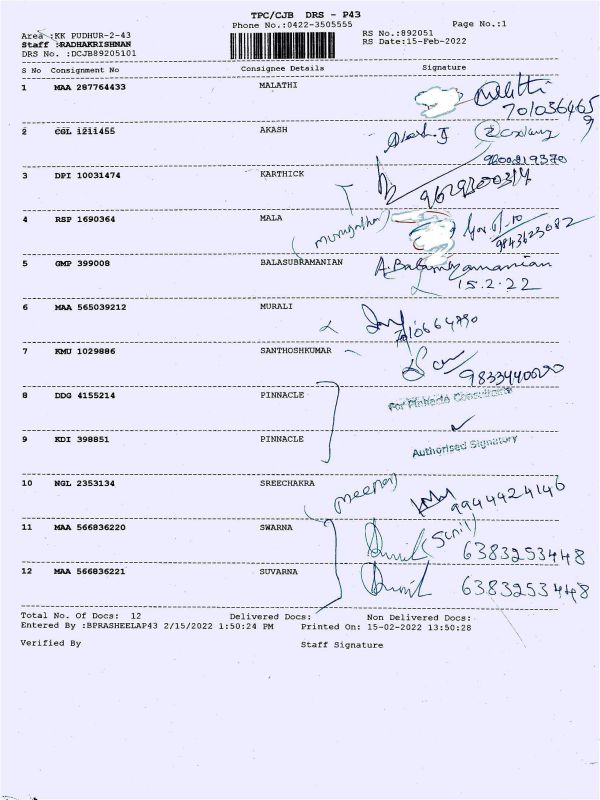 TPC/CJB DRS - P43
Phone No.:0422-3505555
Page No.:1
Area :KK PUDHUR-2-43
RS No.:892051
Staff :RADHAKRISHNAN
RS Date:15-Feb-2022
DRS No. :DCJB89205101
S No Consignment No Consignee Details Signature
1 MAA 287764433 MALATHI
Malathi
701036465
2 CGL 1211455 AKASH
Akash.J
9600219370
3 DPI 10031474 KARTHICK
9629300314
4 RSP 1690364 MALA
9843623082
5 GMP 399008 BALASUBRAMANIAN
A.Balasubramanian
15.2.22
6 MAA 565039212 MURALI
7010664790
7 KMU 1029886 SANTHOSHKUMAR
8 DDG 4155214 PINNACLE
For Pinnacle Consultants
9 KDI 398851 PINNACLE
Authorised Signatory
10 NGL 2353134 SREECHAKRA
9944924146
11 MAA 566836220 SWARNA
Sunil (Sunil) 6383253448
12 MAA 566836221 SUVARNA
Sunil 6383253448
Total No. Of Docs: 12 Delivered Docs: Non Delivered Docs:
Entered By :BPRASHEELAP43 2/15/2022 1:50:24 PM Printed On: 15-02-2022 13:50:28
Verified By Staff Signature